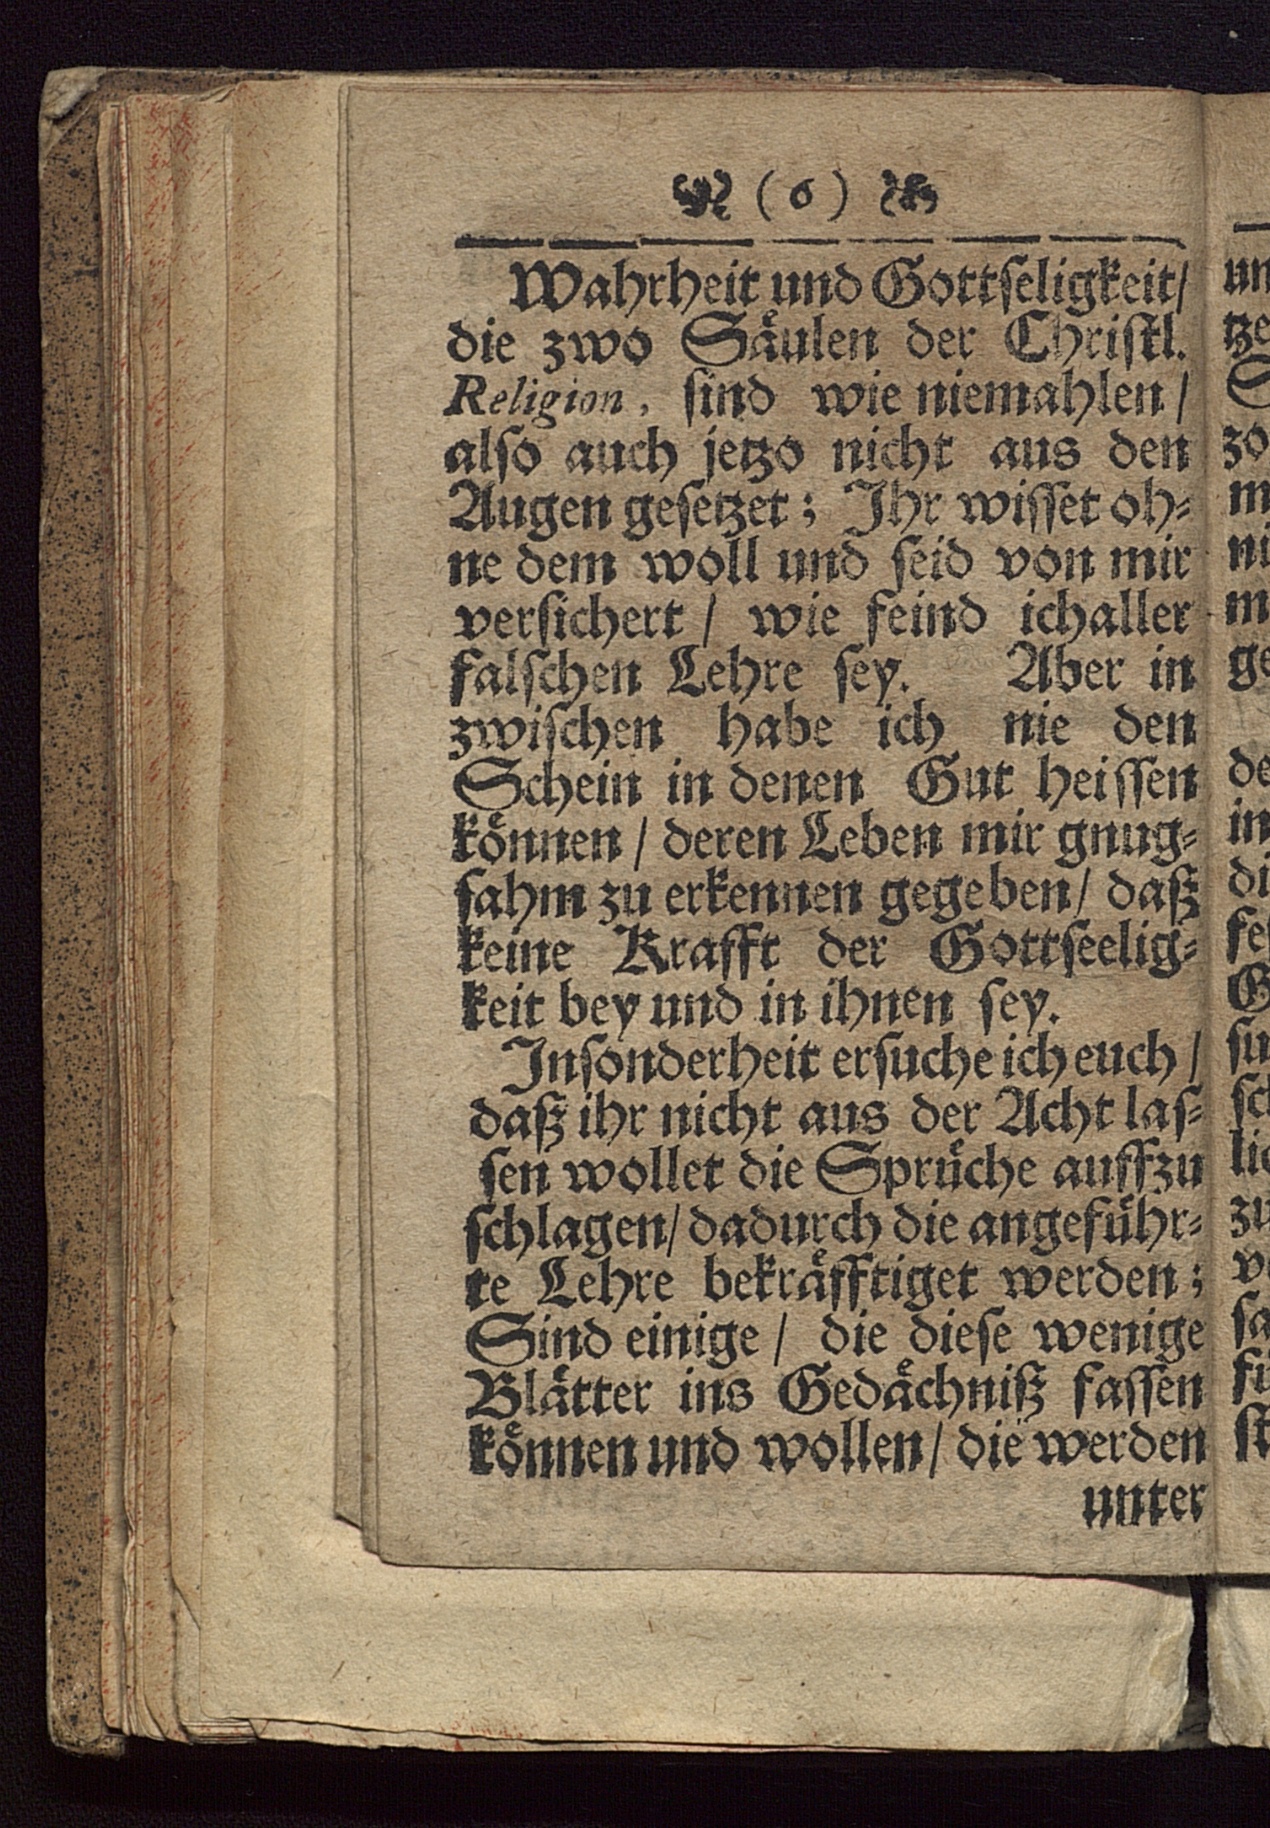 ( 6 )
Wahrheit und Gottſeligkeit/
die zwo Säulen der Chriſtl.
Religion, ſind wie niemahlen/
alſo auch jetzo nicht aus den
Augen geſetzet; Ihr wiſſet oh-
ne dem woll und ſeid von mir
verſichert / wie feind ichaller
falſchen Lehre ſey. Aber in
zwiſchen habe ich nie den
Schein in denen Gut heiſſen
können / deren Leben mir gnug-
ſahm zu erkennen gegeben/ daß
keine Krafft der Gottſeelig-
keit bey und in ihnen ſey.
Inſonderheit erſuche ich euch /
daß ihr nicht aus der Acht laſ-
ſen wollet die Sprüche auffzu
ſchlagen/ dadurch die angeführ-
te Lehre bekräfftiget werden;
Sind einige / die dieſe wenige
Blätter ins Gedächniß faſſen
können und wollen/ die werden
unter